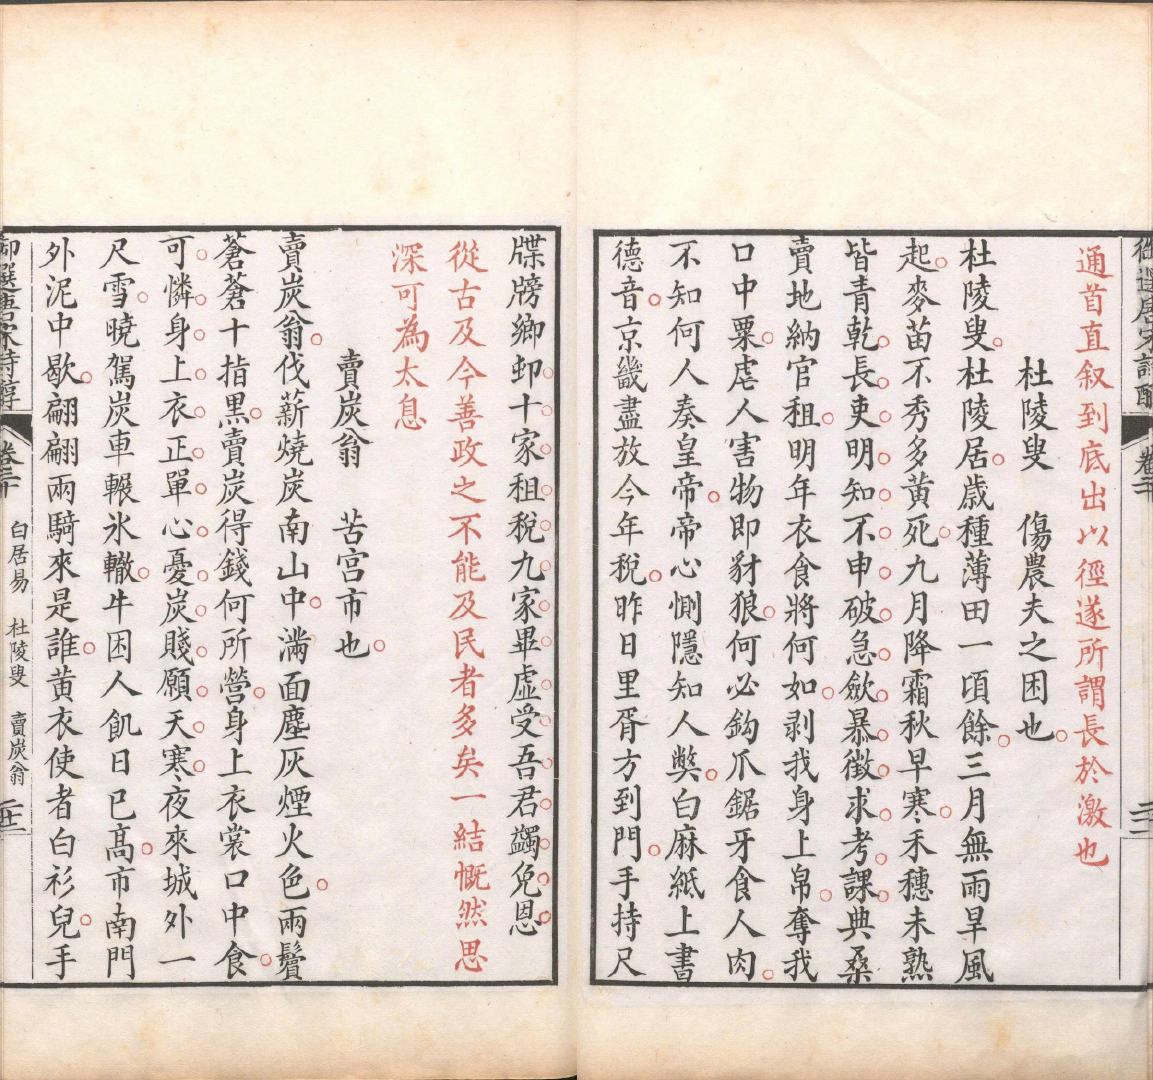 通首直叙到底出以徑遂所謂長於激也
杜陵叟　傷農夫之困也
杜陵叟杜陵居歲種薄田一頃餘三月無雨旱風
起麥苗不秀多黃死九月降霜秋早寒禾穗未熟
皆青乾長吏明知不申破急斂暴徵求考課典桑
賣地納官租明年衣食將何如剥我身上帛奪我
口中粟虐人害物即豺狼何必鈎爪鋸牙食人肉
不知何人奏皇帝帝心惻隱知人弊白麻紙上書
德音京畿盡放今年稅昨日里胥方到門手持尺
牒牓鄉邨十家租稅九家畢虛受吾君蠲免恩
從古及今善政之不能及民者多矣一結慨然思
深可為太息
賣炭翁　苦宫市也
賣炭翁伐薪燒炭南山中滿面塵灰煙火色兩鬢
蒼蒼十指黑賣炭得錢何所營身上衣裳口中食
可憐身上衣正單心憂炭賤願天寒夜來城外一
尺雪曉駕炭車輾氷轍牛困人飢日已高市南門
外泥中歇翩翩兩騎來是誰黃衣使者白衫兒手
御選唐宋詩醇　卷二十　白居易　杜陵叟　賣炭翁